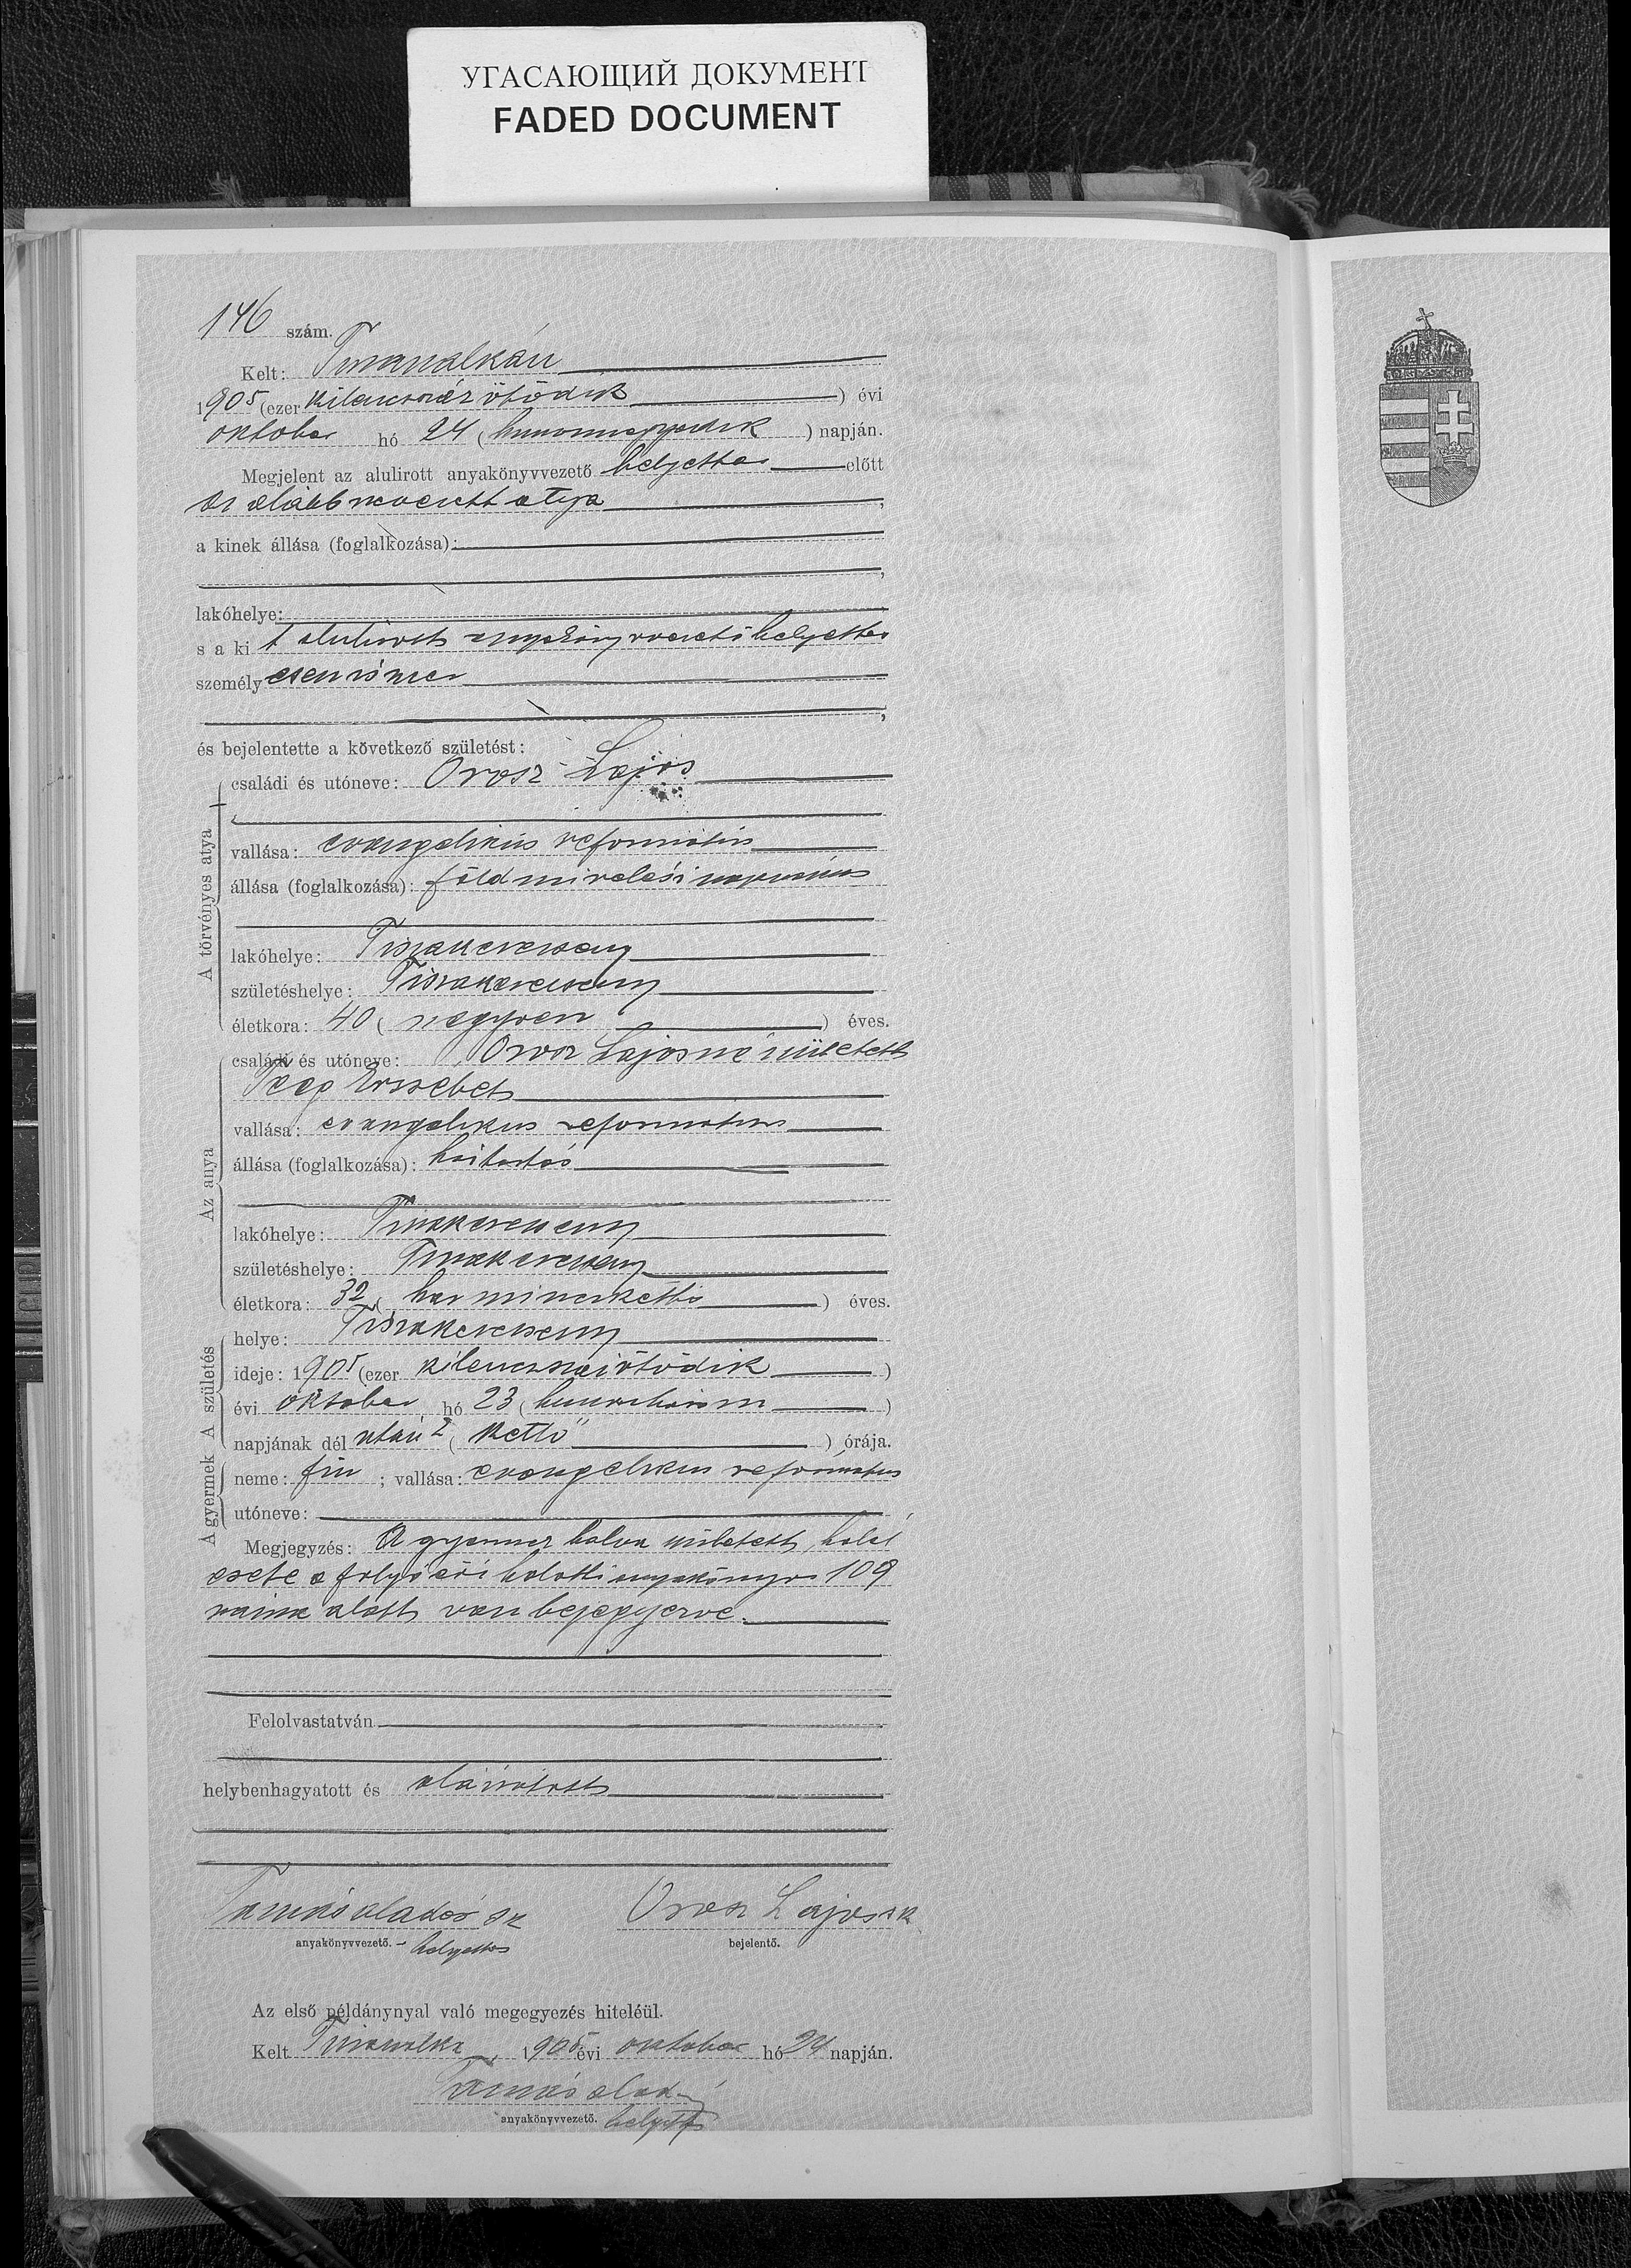 УГАСАЮЩИЙ ДОКУМЕНТ
FADED DOCUMENT
146 szám.
Kelt:
1905 (ezer kilenczszáz ötödik ) évi
október hó 24 (huszonnegyedik ) napján.
Megjelent az alulirott anyakönyvvezető helyettes előtt
az alább nevezett atya ,
a kinek állása (foglalkozása):
,
lakóhelye:
s a ki t alulirott anyakönyvvezető helyettes
személyesen ismer
,
és bejelentette a következő születést:
A törvényes atya
családi és utóneve: Orosz Lajos
vallása: evangelikus református
állása (foglalkozása): földmivelési napszámos
lakóhelye: Tiszakerecseny
születéshelye: Tiszakerecseny
életkora: 40 ( negyven ) éves.
Az anya
családi és utóneve: Orosz Lajosné született
Erzsébet
vallása: evangelikus református
állása (foglalkozása): háztartás
lakóhelye: Tiszakerecseny
születéshelye: Tiszakerecseny
életkora: 32 ( harminczkettő ) éves.
A születés
helye: Tiszakerecseny
ideje: 1905 (ezer kilenczszázötödik )
évi október hó 23 (huszonhárom )
napjának dél után 2 ( kettő ) órája.
A gyermek
neme: fiu ; vallása: evangelikus református
utóneve:
Megjegyzés: A gyermek halva született, halál
esete a folyó évi halotti anyakönyv 109
száma alatt van bejegyezve.
Felolvastatván
helybenhagyatott és aláiratott
Tamás Aladár sk Orosz Lajos sk
anyakönyvvezető. helyettes bejelentő.
Az első példánynyal való megegyezés hiteléül.
Kelt 1905 évi október hó 24 napján.
Tamás Aladár
anyakönyvvezető. helyettes